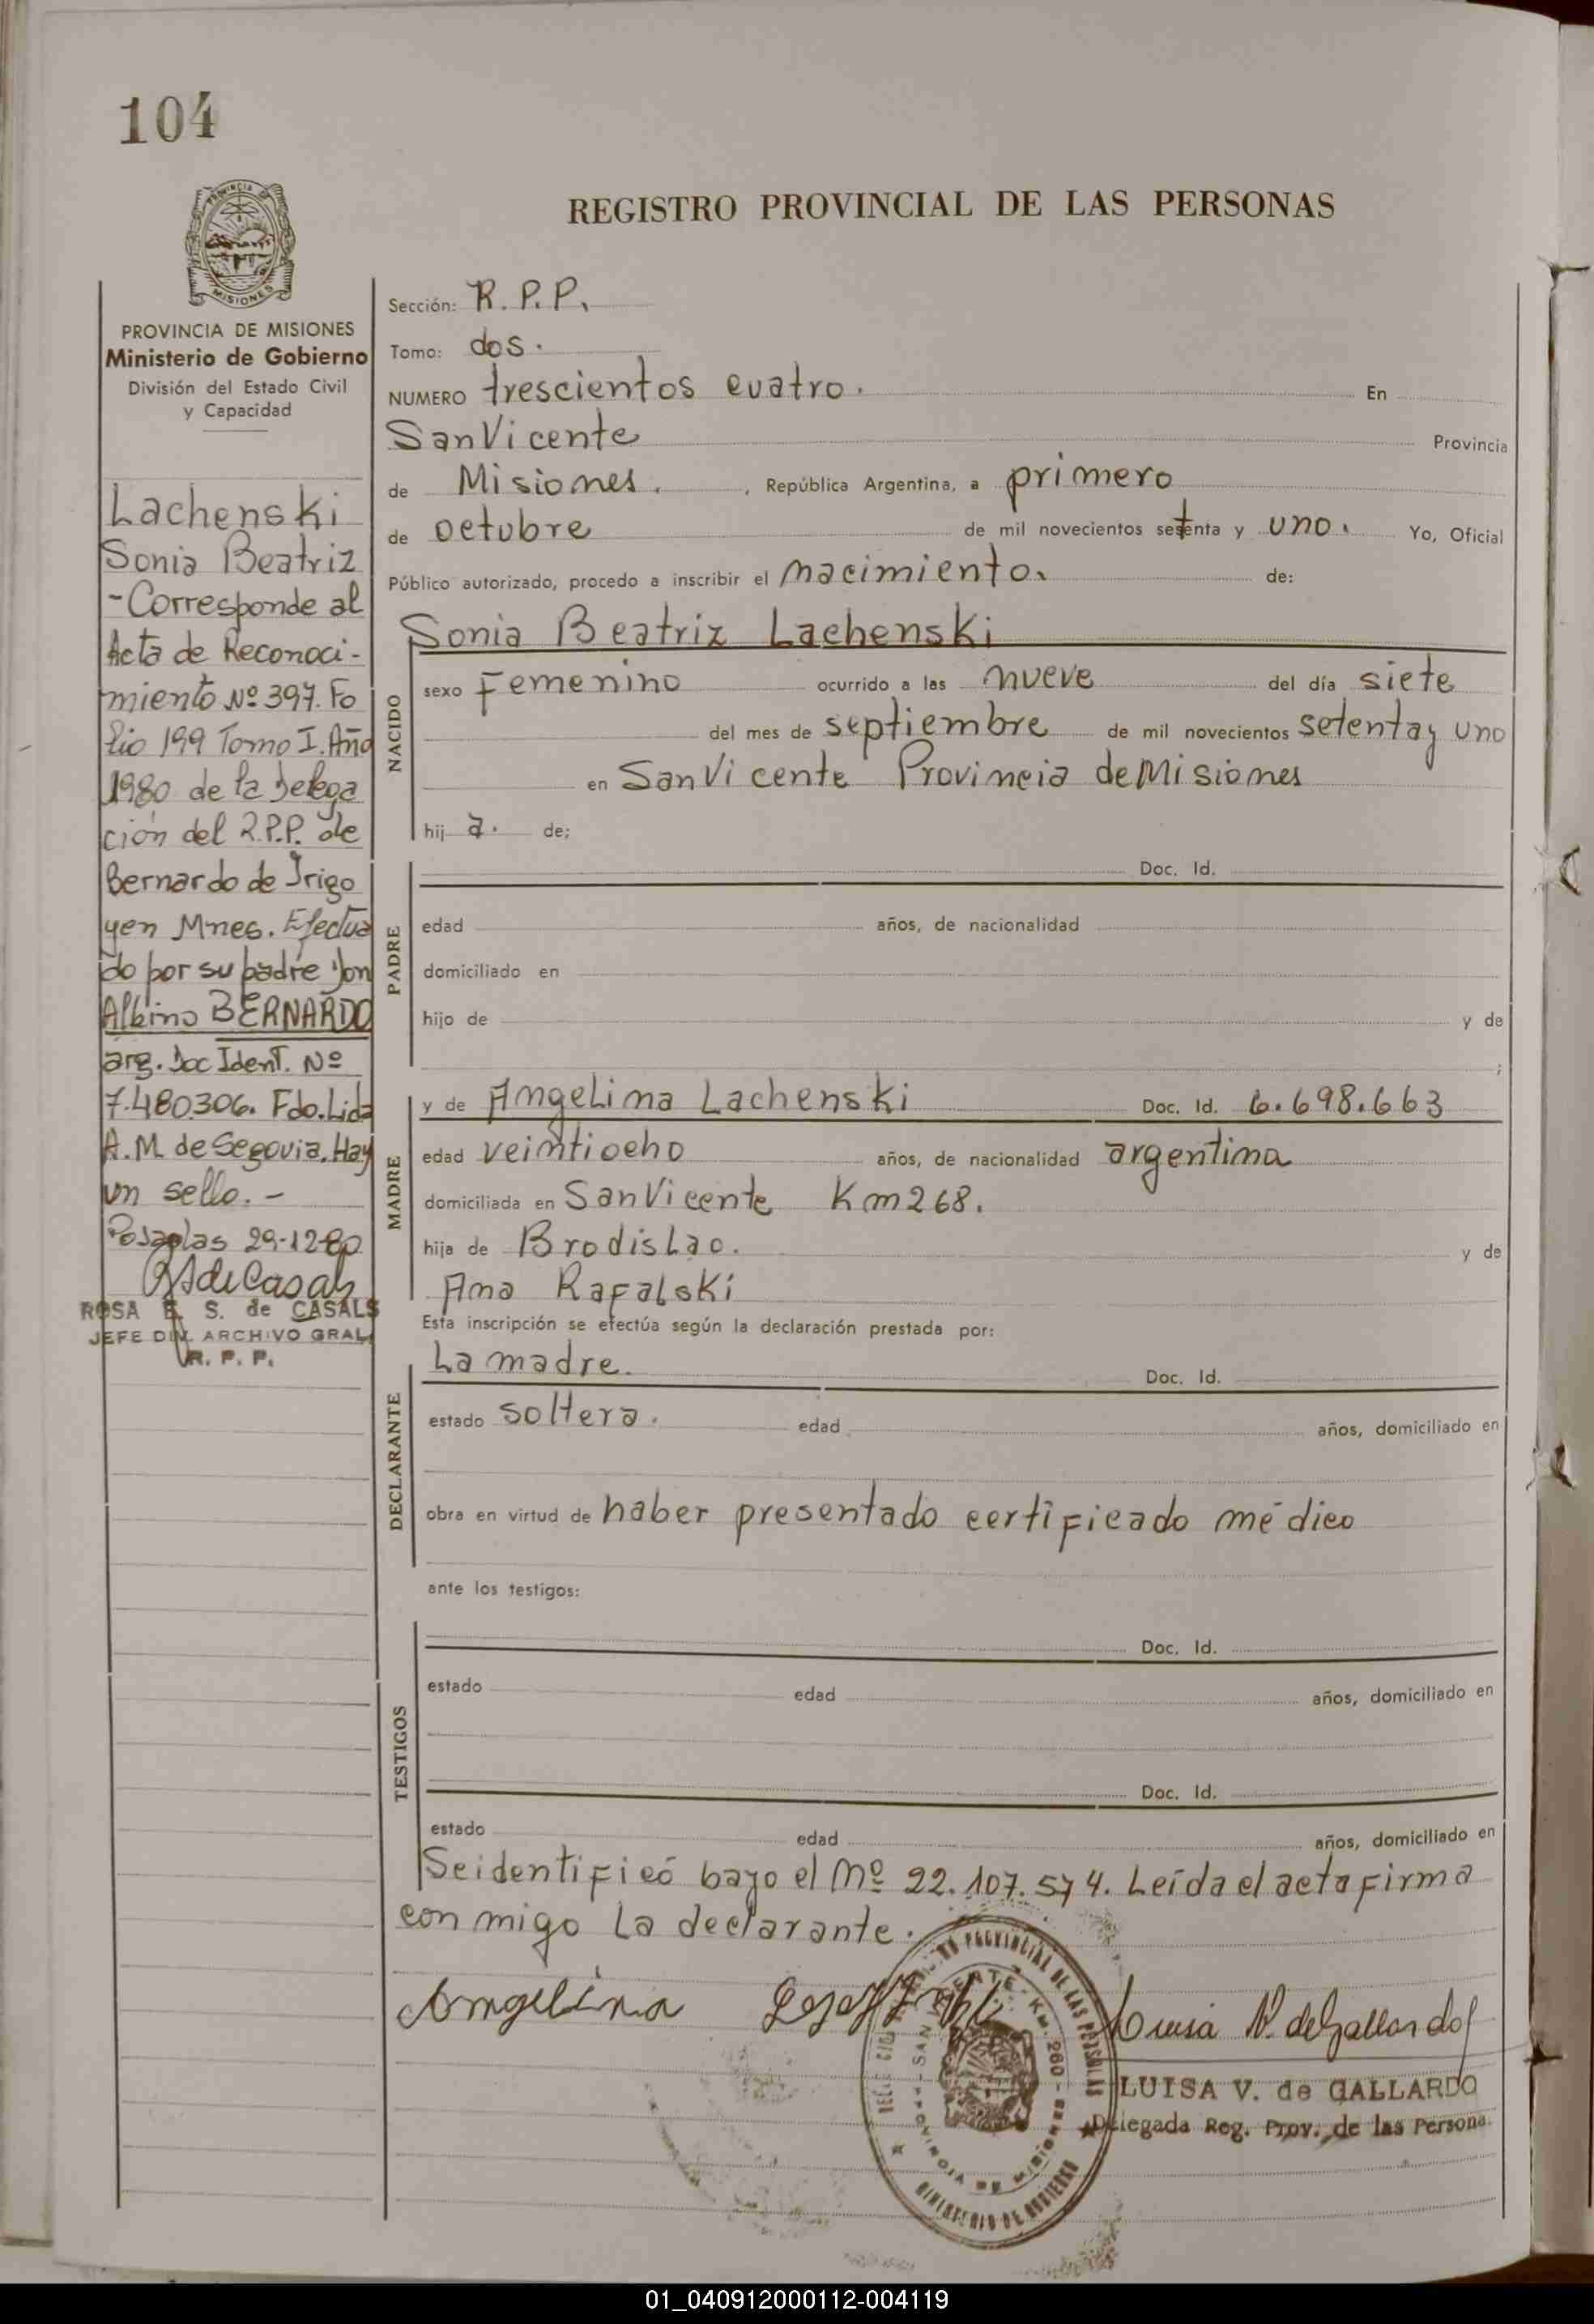 104
PROVINCIA DE
MISIONES
REGISTRO PROVINCIAL DE LAS PERSONAS
PROVINCIA DE MISIONES
Ministerio de Gobierno
División del Estado Civil
y Capacidad
Lachenski
Sonia Beatriz
-Corresponde al
Acta de Reconoci-
miento Nº 397. Fo
lio 199 Tomo I. Año
1980 de la Delega
ción del R.P.P. de
Bernardo de Irigo
yen Mnes. Efectua
do por su padre Don
Albino BERNARDO
arg. Doc Ident. Nº
7.480.306. Fdo. Lida
A. M. de Segovia. Hay
un sello. -
Posadas 29-12-80
ROSA E. S. de CASALS
JEFE DIV. ARCHIVO GRAL.
R. P. P.
Sección: R. P. P.
Tomo: dos.
NUMERO trescientos cuatro. En
San Vicente Provincia
de Misiones. , República Argentina, a primero
de octubre de mil novecientos setenta y uno. Yo, Oficial
Público autorizado, procedo a inscribir el nacimiento. de:
NACIDO
Sonia Beatriz Lachenski
sexo Femenino ocurrido a las nueve del día siete
del mes de septiembre de mil novecientos setenta y uno
en San Vicente Provincia de Misiones
hij a. de;
PADRE
Doc. Id.
edad años, de nacionalidad
domiciliado en
hijo de y de
;
MADRE
y de Angelina Lachenski Doc. Id. 6.698.663
edad veintiocho años, de nacionalidad argentina
domiciliada en San Vicente Km 268.
hija de Brodislao. y de
Ana Rafalski
Esta inscripción se efectúa según la declaración prestada por:
DECLARANTE
La madre. Doc. Id.
estado soltera. edad años, domiciliado en
obra en virtud de haber presentado certificado médico
ante los testigos:
TESTIGOS
Doc. Id.
estado edad años, domiciliado en
Doc. Id.
estado edad años, domiciliado en
Se identificó bajo el Nº 22.107.574. Leída el acta firma
conmigo la declarante.
Angelina
Luisa V. de Gallardo
LUISA V. de GALLARDO
Delegada Reg. Prov. de las Persona.
PROVINCIAL DE LAS PERSONAS
SAN VICENTE - KM. 260 -
PROVINCIA DE MISIONES
MINISTERIO DE GOBIERNO
01_040912000112-004119